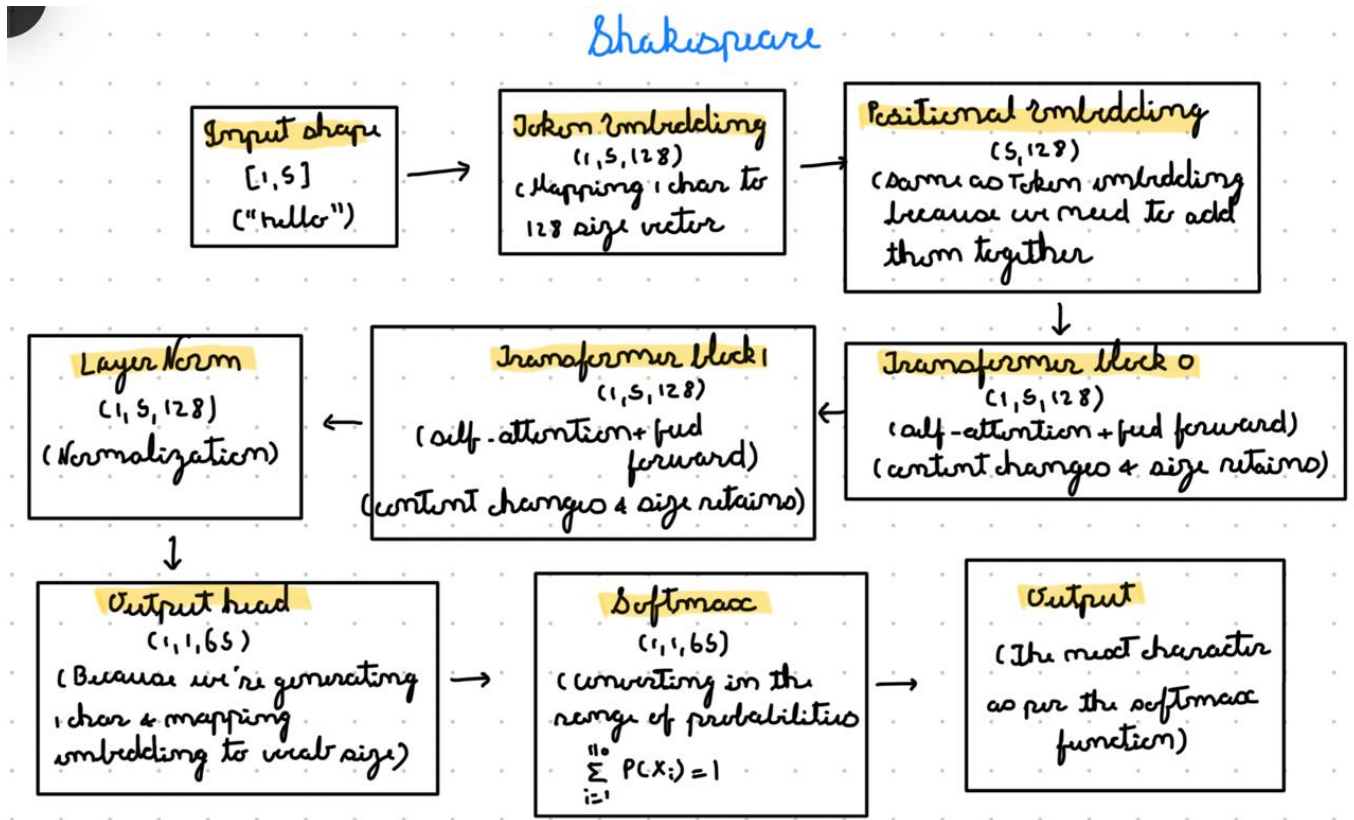 Shakespeare
Input shape
[1,5]
("hello")
Token Embedding
(1,5,128)
(Mapping 1 char to
128 size vector
Positional Embedding
(5,128)
(same as Token embedding
because we need to add
them together
Transformer block 0
(1,5,128)
(self-attention+feed forward)
(content changes & size retains)
Transformer block 1
(1,5,128)
(self-attention+feed
forward)
(content changes & size retains)
Layer Norm
(1,5,128)
(Normalization)
Output head
(1,1,65)
(Because we're generating
1 char & mapping
embedding to vocab size)
Softmax
(1,1,65)
(converting in the
range of probabilities
Σ P(Xi) = 1
i=1
Output
(The next character
as per the softmax
function)